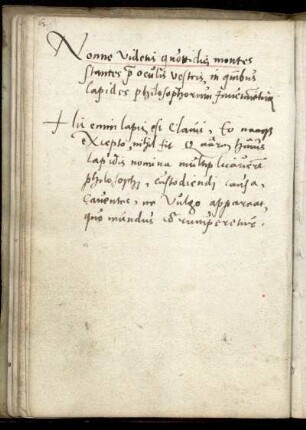 Nonne videtis quottidie montes
stantes p oculis vestris, in quibus
lapides philosophorum
Hic enim lapis est Clavis, Eo
excepto, nihil fit
lapidis nomina multiplicaverunt
philosophi, custodiendi causa,
Caventes, ne Vulgo appareat,
quo mundus